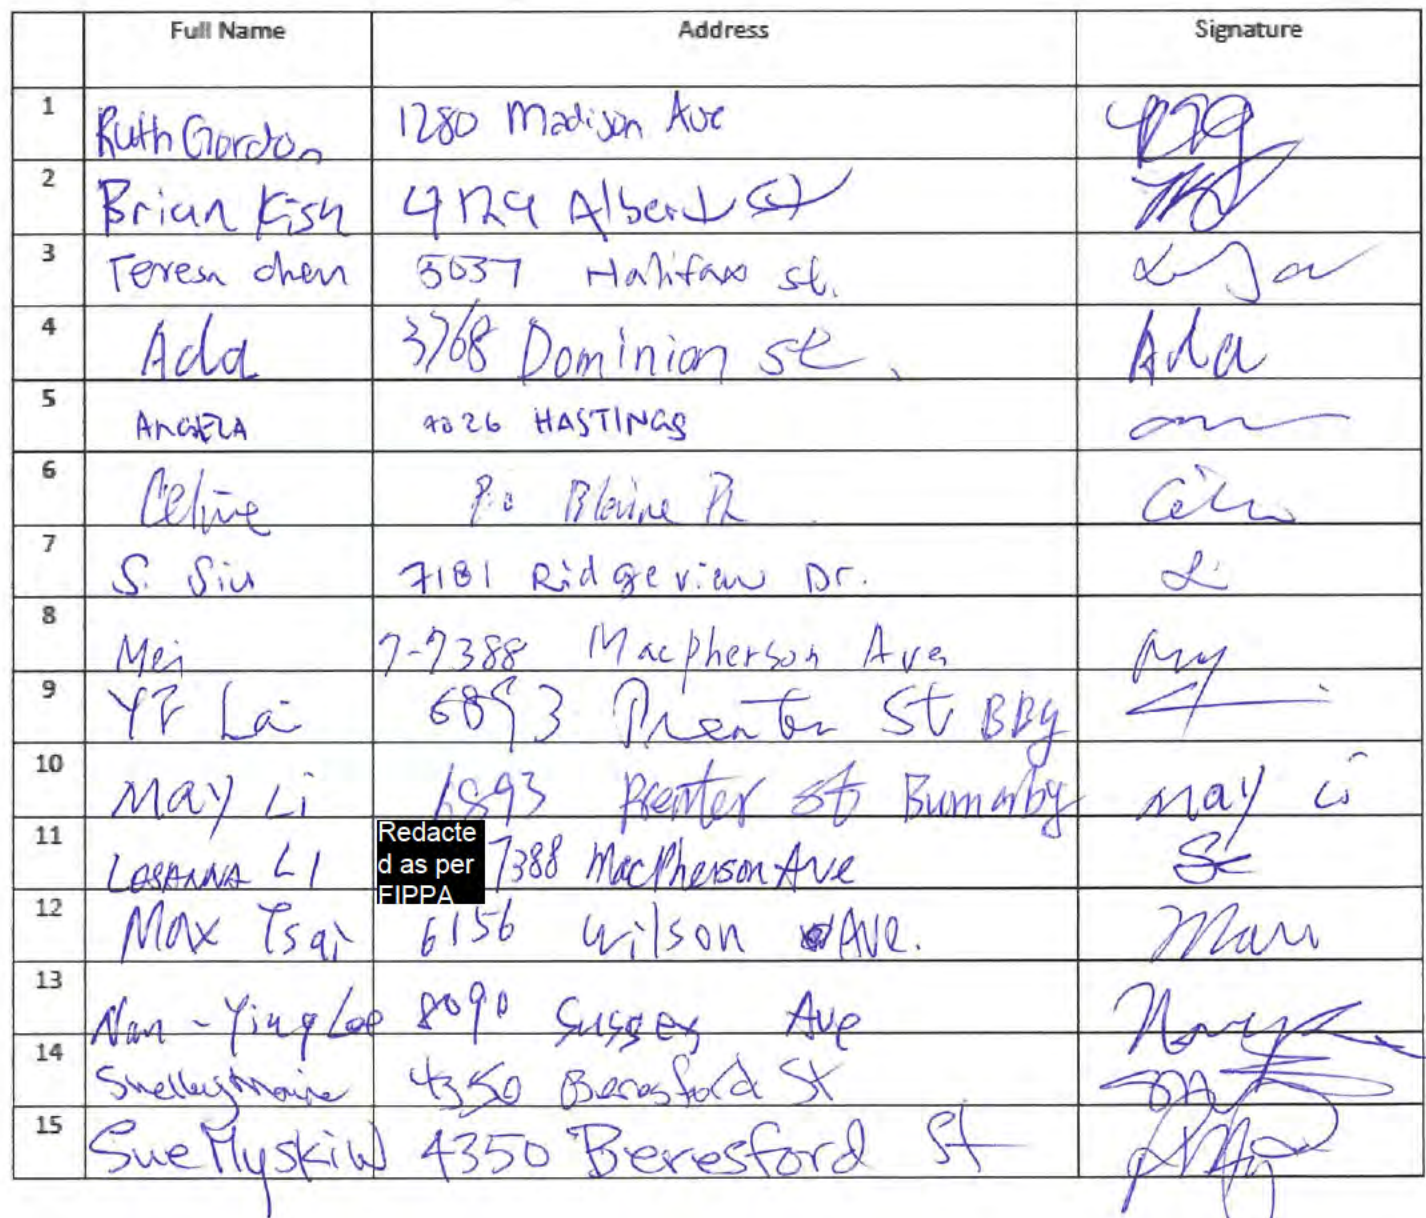 Full Name Address Signature
1 Ruth Gordon 1280 Madison Ave
2 Brian Kish 4129 Albert St
3 Teresa chen 5037 Halifax st.
4 Ada 3768 Dominion st. Ada
5 ANGELA 4026 HASTINGS
6 Celine Blaine
7 S. Siu 7181 Ridgeview Dr.
8 Mei 7-7388 Macpherson Ave
9 YF Lai 6893 Prenter St BBY
10 MAY Li 6893 Prenter St Burnaby MAY Li
11 LOSANNA LI Redacted as per FIPPA 7388 MacPherson Ave
12 Max Tsai 6156 Wilson AVE.
13 Nan-Ying Lee 8090 Sussex Ave
14 Shelley 4350 Beresford St
15 Sue Myskiw 4350 Beresford St